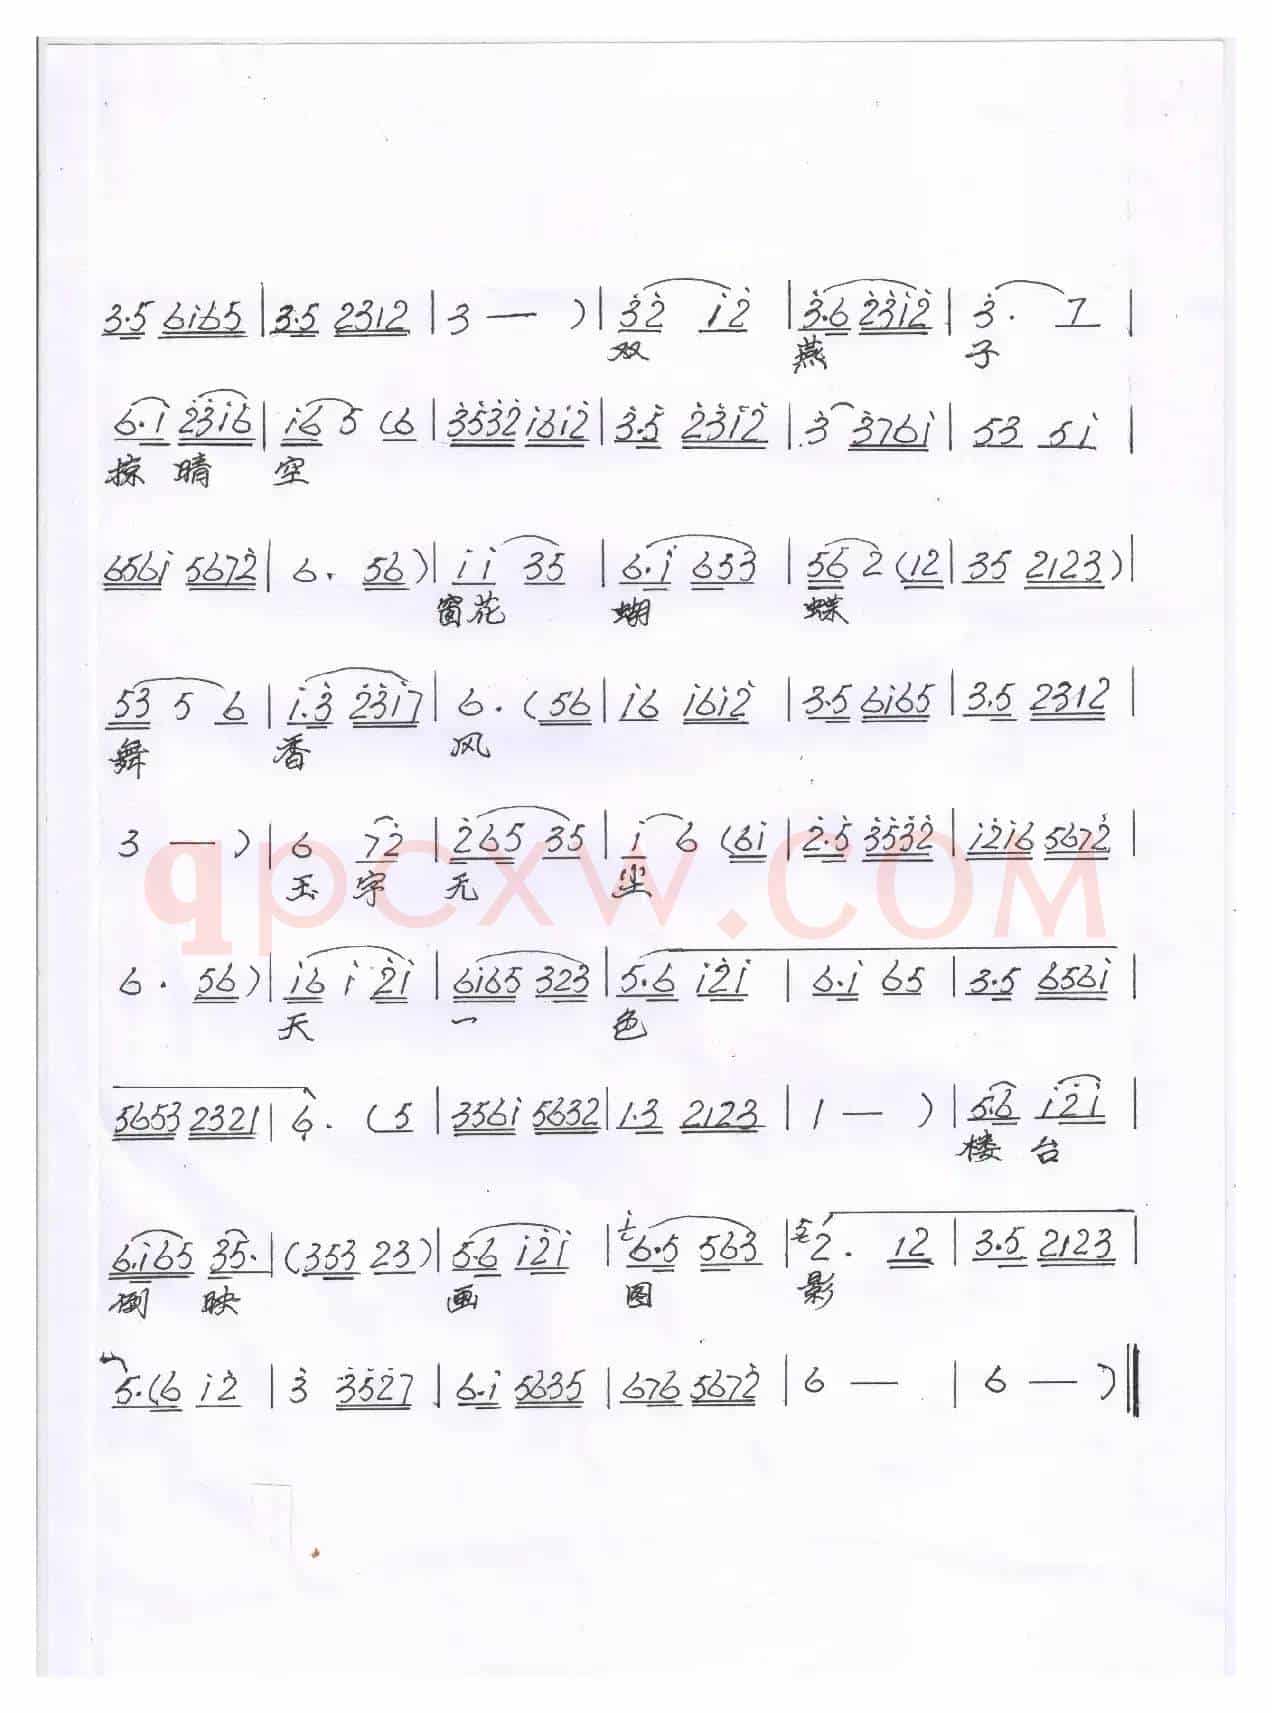 3·5 6i65 | 3·5 2312 | 3 — ) | 3̇2̇ i2̇ | 3̇·6 2̇3̇i2̇ | 3̇· 7 |
双 燕 子
6·i 2̇3̇i6 | i6 5 (6 | 3̇5̇3̇2̇ i6i2̇ | 3̇·5 2̇3̇i2̇ | 3̇ 3̇76i | 53 5i |
掠 晴 空
656i 5672̇ | 6· 56 ) | i i 35 | 6·i 653 | 56 2 (12 | 35 2123 ) |
窗花 蝴 蝶
53 5 6 | i·3̇ 2̇3̇i7 | 6· (56 | i6 i6i2̇ | 3·5 6i65 | 3·5 2312 |
舞 香 风
3 — ) | 6 72̇ | 2̇65 35 | i 6 (6i | 2̇·5̇ 3̇5̇3̇2̇ | i2̇i6 5672̇ |
玉 宇 无 尘
qpcxw.com
6· 56 ) | i6 i 2̇i | 6i65 323 | 5·6 i2̇i | 6·i 65 | 3·5 656i |
天 一 色
5653 2321 | 6̣· (5 | 356i 5632 | 1·3 2123 | 1 — ) | 5·6 i2̇i |
楼 台
6·i65 35· | (353 23 ) | 5·6 i2̇i | 6·5 563 | 2· 12 | 3·5 2123 |
倒 映 画 图 影
5·(6 i2̇ | 3̇ 3̇5̇2̇7 | 6·i 5635 | 676 5672̇ | 6 — | 6 — ) ‖